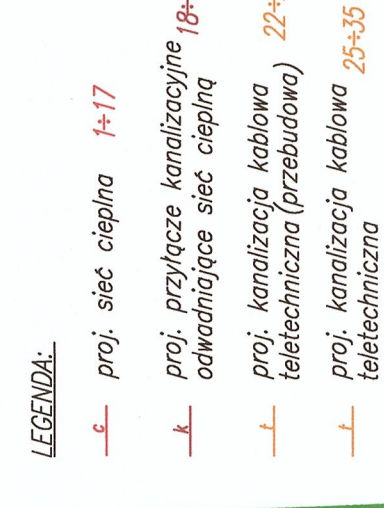 LEGENDA:
c proj. sieć cieplna 1÷17
k proj. przyłącze kanalizacyjne 18÷
odwadniające sieć cieplną
t proj. kanalizacja kablowa 22÷
teletechniczna (przebudowa)
t proj. kanalizacja kablowa 25÷35
teletechniczna